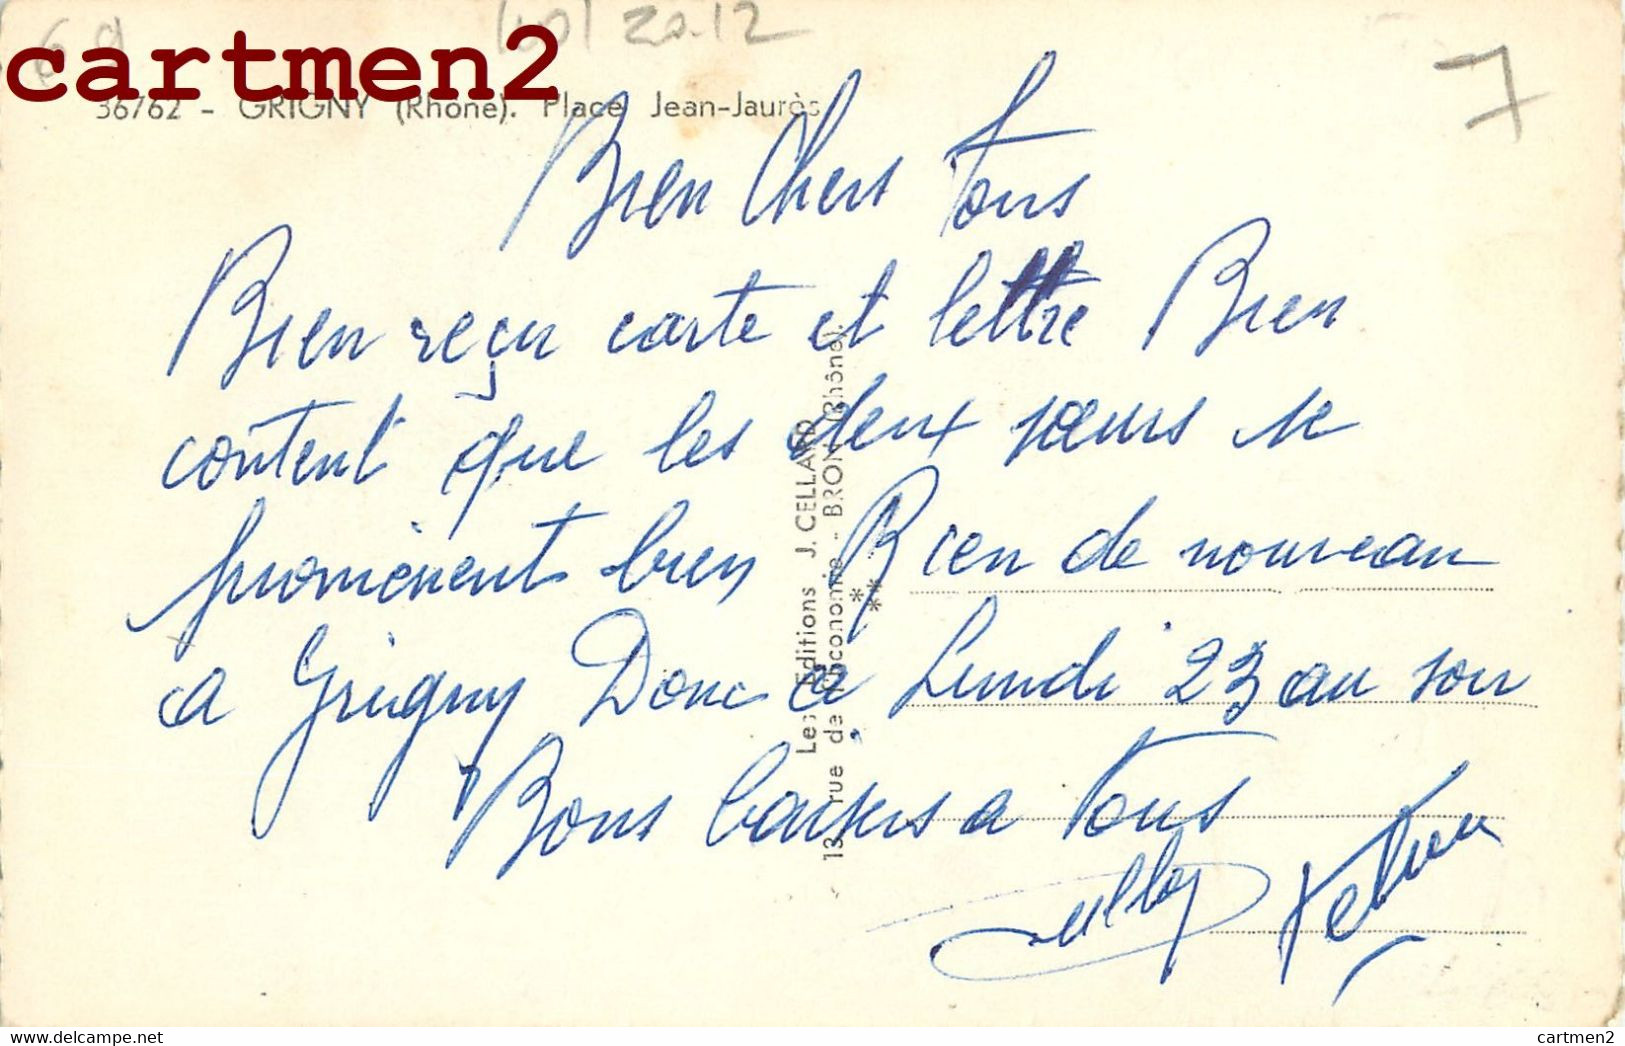 cartmen2
20.12
7
36762 - GRIGNY (Rhône). Place Jean-Jaurès
Bien Chers Tous
Bien reçu carte et lettre Bien
content que les deux sœurs se
promènent bien Rien de nouveau
a Grigny Donc a Lundi 23 au soir
Bons baisers a Tous
Les Editions J. CELLARD
13, rue de - BRON (Rhône).
cartmen2